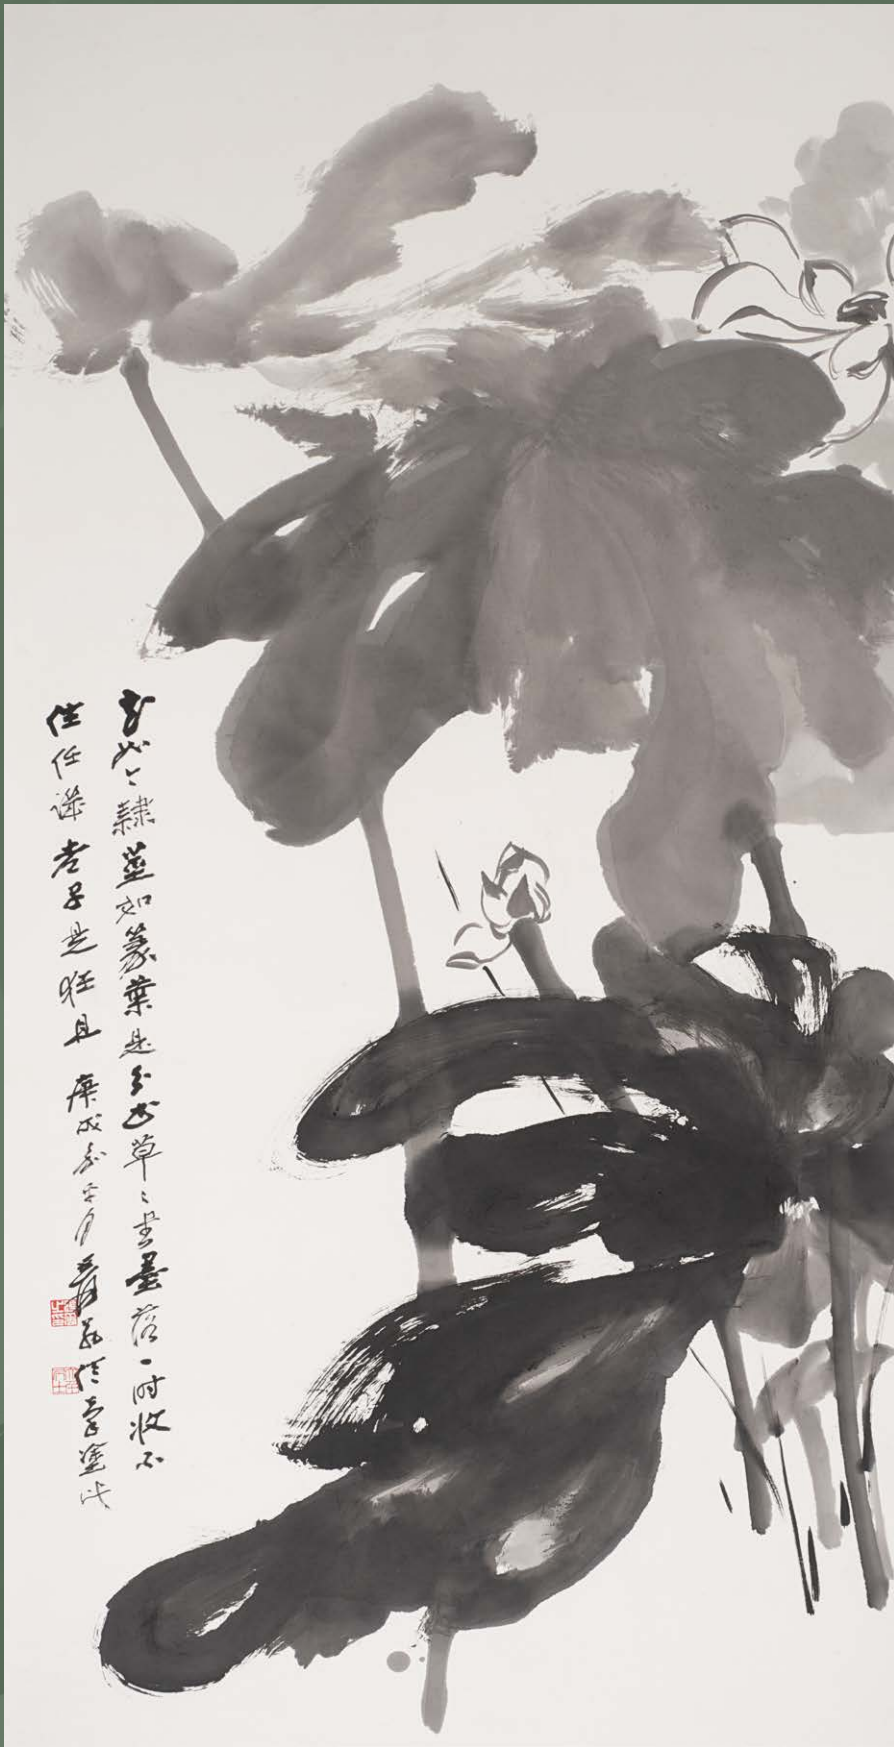 花如今隸莖如篆葉是分書草〻書墨落一時收不
住任譏老子是狂且 庚戌嘉平月爰翁信塗此